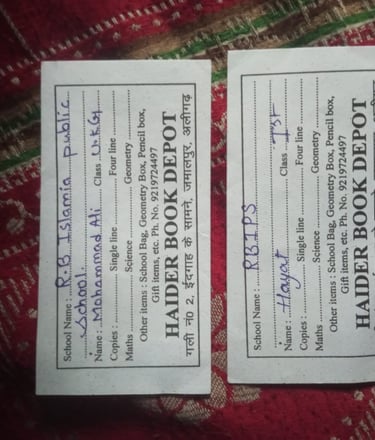 School Name : R.B Islamia public
School.
Name : Mohammad Ali Class U.K.G
Copies : Single line Four line
Maths Science Geometry
Other items : School Bag, Geometry Box, Pencil box,
Gift items, etc. Ph. No. 9219724497
HAIDER BOOK DEPOT
गली नं0 2, ईदगाह के सामने, जमालपुर, अलीगढ़
School Name : RBIPS
Name : Hayat Class Ist
Copies : Single line Four line
Maths Science Geometry
Other items : School Bag, Geometry Box, Pencil box,
Gift items, etc. Ph. No. 9219724497
HAIDER BOOK DEPOT